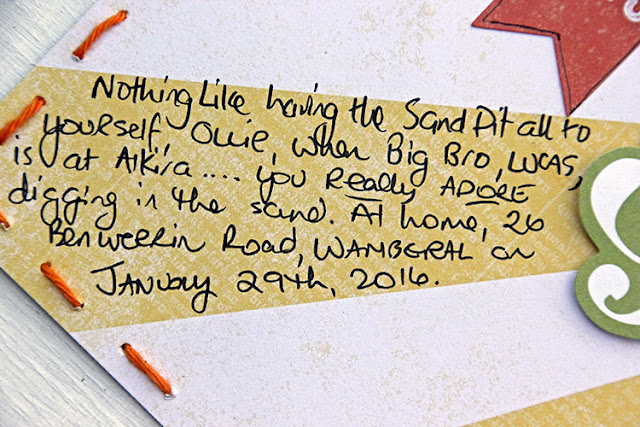 Nothing Like having the Sand Pit all to
yourself, Ollie, when Big Bro, LUCAS,
is at Aikira.... you Really ADORE
digging in the sand. At home, 26
Benweerin Road, WAMBERAL on
January 29th, 2016.